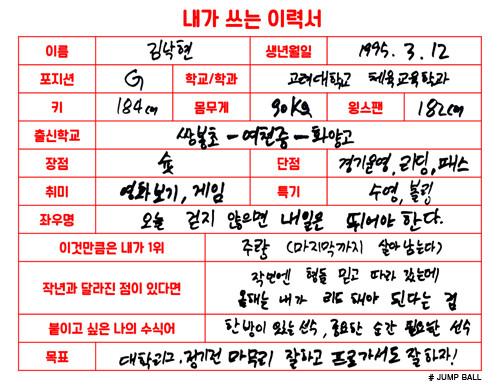 내가 쓰는 이력서
이름 김낙현 생년월일 1995. 3. 12
포지션 G 학교/학과 고려대학교 체육교육학과
키 184cm 몸무게 90kg 윙스팬 182cm
출신학교 쌍봉초 - 여천중 - 화양고
장점 슛 단점 경기운영, 리딩, 패스
취미 영화보기, 게임 특기 수영, 볼링
좌우명 오늘 걷지 않으면 내일은 뛰어야 한다.
이것만큼은 내가 1위 주량 (마지막까지 살아남는다)
작년과 달라진 점이 있다면 작년엔 형들 믿고 따라 갔는데
올해는 내가 리드 해야 된다는 점
붙이고 싶은 나의 수식어 한방이 있는 선수, 중요한 순간 필요한 선수
목표 대학리그, 정기전 마무리 잘하고 프로가서도 잘하자!
# JUMP BALL